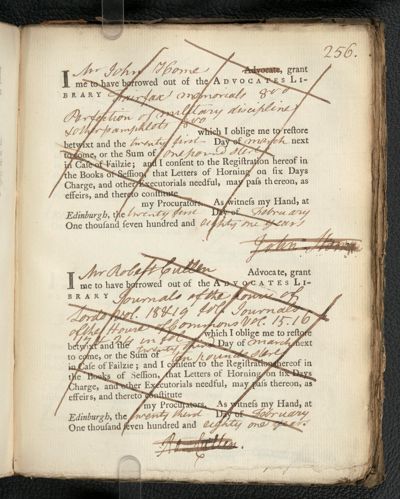 256.
I Mr John Home Advocate, grant
me to have borrowed out of the ADVOCATES LI-
BRARY Fairfax memorials 8vo
Perfection of military discipline
& other pamphlets 8vo
which I oblige me to restore
betwixt and the twenty first Day of march next
to come, or the Sum of one pound sterl
in Case of Failzie; and I consent to the Registration hereof in
the Books of Session, that Letters of Horning on six Days
Charge, and other Executorials needful, may pass thereon, as
effeirs, and thereto constitute
my Procurators. As witness my Hand, at
Edinburgh, the twenty first Day of February
One thousand seven hundred and eighty one years
John Home
I Mr Robert Cullen Advocate, grant
me to have borrowed out of the ADVOCATES LI-
BRARY Journals of the house of
Lords Vol. 18 & 19 & the Journals
of the House of Commons Vol. 15. 16
which I oblige me to restore
betwixt and the twenty third Day of march next
to come, or the Sum of Ten pounds sterl
in Case of Failzie; and I consent to the Registration hereof in
the Books of Session, that Letters of Horning on six Days
Charge, and other Executorials needful, may pass thereon, as
effeirs, and thereto constitute
my Procurators. As witness my Hand, at
Edinburgh, the twenty third Day of February
One thousand seven hundred and eighty one years.
Ro. Cullen.